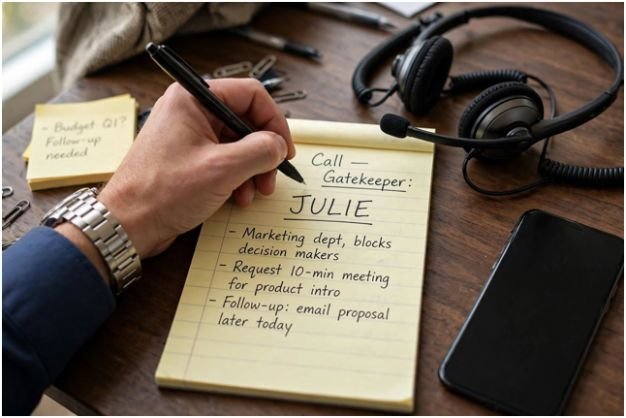 - Budget Q1?
Follow-up
needed
Call —
Gatekeeper:
JULIE
- Marketing dept, blocks
decision makers
- Request 10-min meeting
for product intro
- Follow-up: email proposal
later today